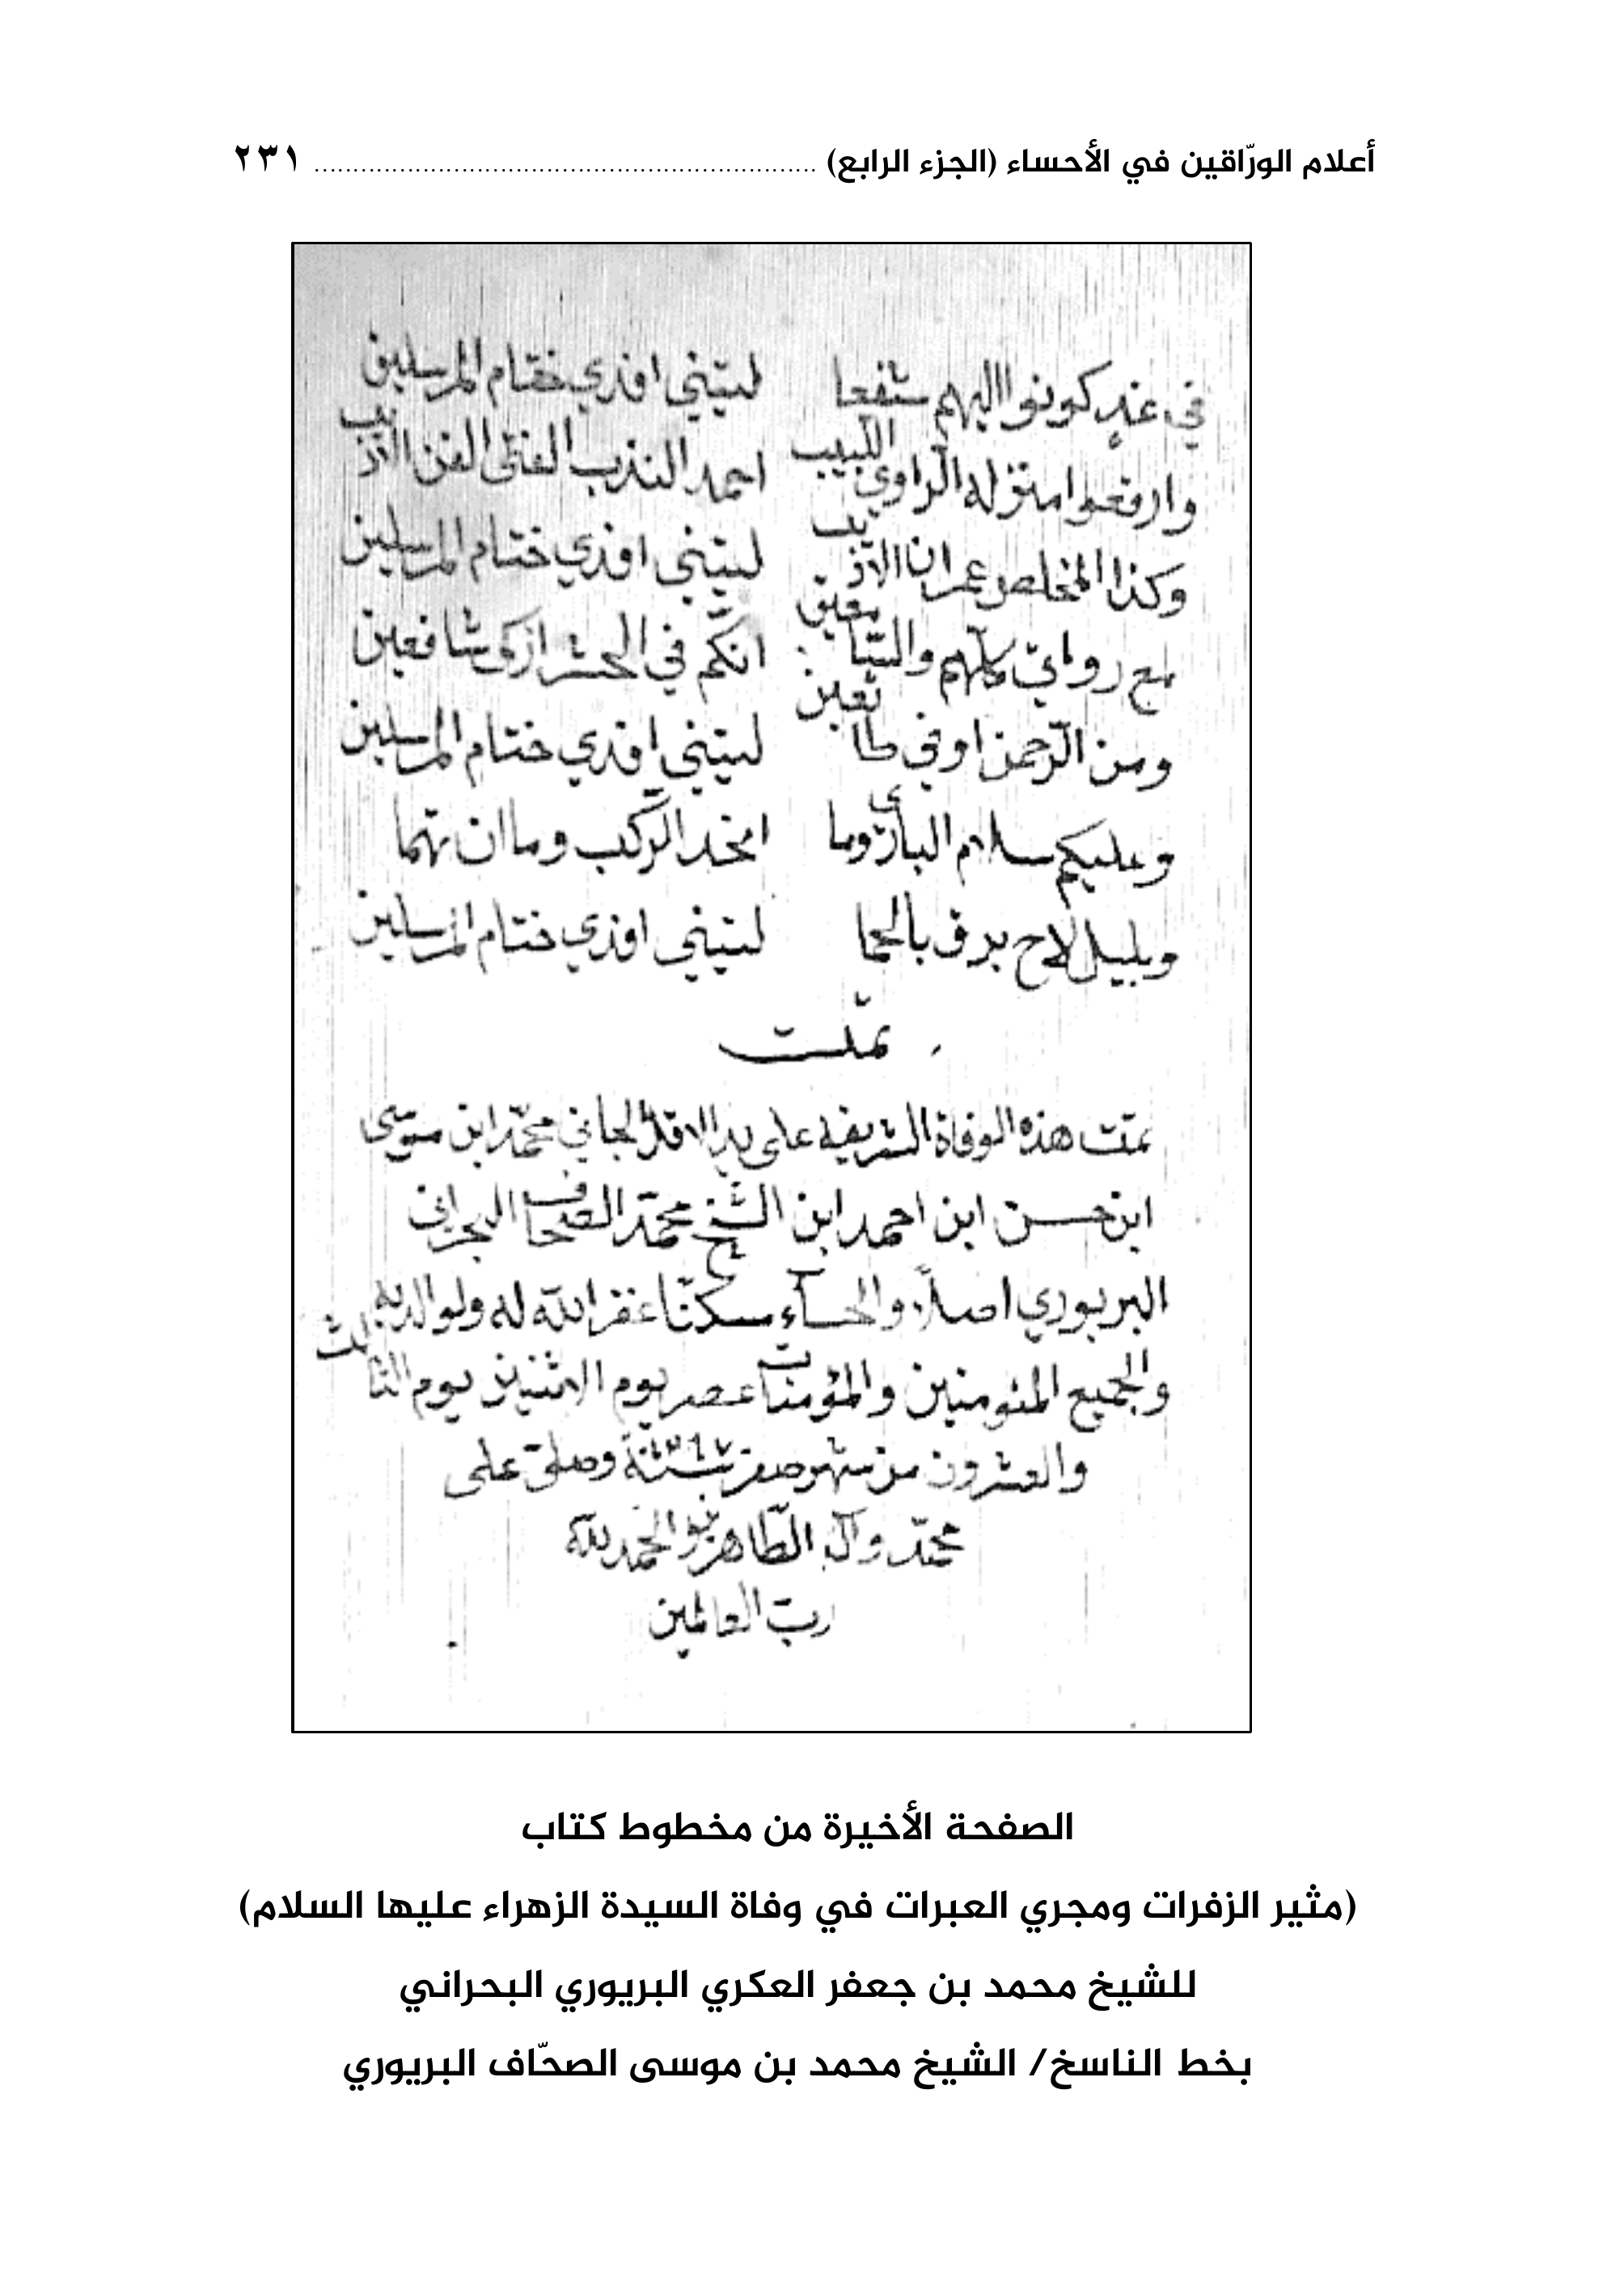 أعلام الورّاقين في الأحساء (الجزء الرابع) ................................................................ ٢٣١
في غدٍ كونوا اليهم شفعا ليتني افدي ختام المرسلين
وارفعوا منزله الراوي اللبيب احمد الندب الفتى الفن الاذيب
وكذا المخلص عمران الاذيب ليتني افدي ختام المرسلين
مع رواتي كلّهم والسّامعين انكّم في الحشر ازكى شافعين
ومن الرّحمن اوفي طائعين ليتني افدي ختام المرسلين
وعليكم سلام الباري وما انجد الرّكب وما ان تهما
وبليل لاح برق بالحما ليتني افدي ختام المرسلين
تمّت
تمّت هذه الوفاة الشريفه على يد الاقل الجاني محمّد ابن موسى
ابن حسن ابن احمد ابن الشيخ محمّد الصّحاف البحراني
البربوري اصلاً والحساء سكنّا غفر الله له ولوالديه
والجميع المئومنين والمؤمنات عصر يوم الاثنين يوم الثالث
والعشرون من شهر صفر سنة وصلى على
محمّد وآله الطّاهرين والحمد لله
ربّ العالمين
الصفحة الأخيرة من مخطوط كتاب
(مثير الزفرات ومجري العبرات في وفاة السيدة الزهراء عليها السلام)
للشيخ محمد بن جعفر العكري البربوري البحراني
بخط الناسخ/ الشيخ محمد بن موسى الصحّاف البربوري